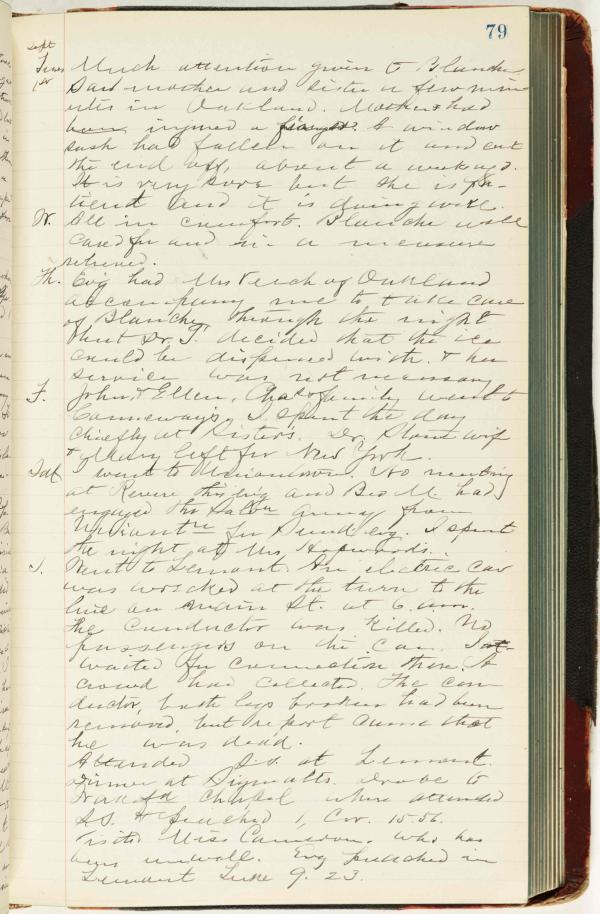 79
Sept
Tues Much attention given to Blanche.
1st Saw mother and sister a few min
utes in Oakland. Mother had
been injured a finger. A window
sash had fallen on it and cut
the end off, about a week ago.
It is very sore but she is pa-
tient and it is doing well.
W. All in comfort. Blanche well
cared for and in a measure
relieved.
Th. Ev'g had Mrs of Oakland
accompany me to take care
of Blanche through the night
but Dr. T. decided that the ice
could be dispensed with & her
service was not necessary
F. John & Ellen, Chas & family went to
I spent the day
chiefly at Sisters. Dr. wife
& left for New York.
Sat I went to Uniontown. No meeting
at Revere this ev'g and Bro M. had
engaged the from
Uniont'n for Sund ev'g. I spent
the night at Mrs Hopwoods.
S. Went to Lemont. An electric car
was wrecked at the turn to the
line on Main St. at 6 a.m.
The conductor was killed. No
passengers on the car. I
waited for connection there. A
crowd had collected. The con
ductor, both legs broken had been
removed, but report came that
he was dead.
Attended S.S. at Lemont.
Dinner at Drove to
chapel where attended
S.S. & preached 1, Cor. 15.56.
Visited Miss Cameron, who has
been unwell. Ev'g preached in
Lemont Luke 9. 23.